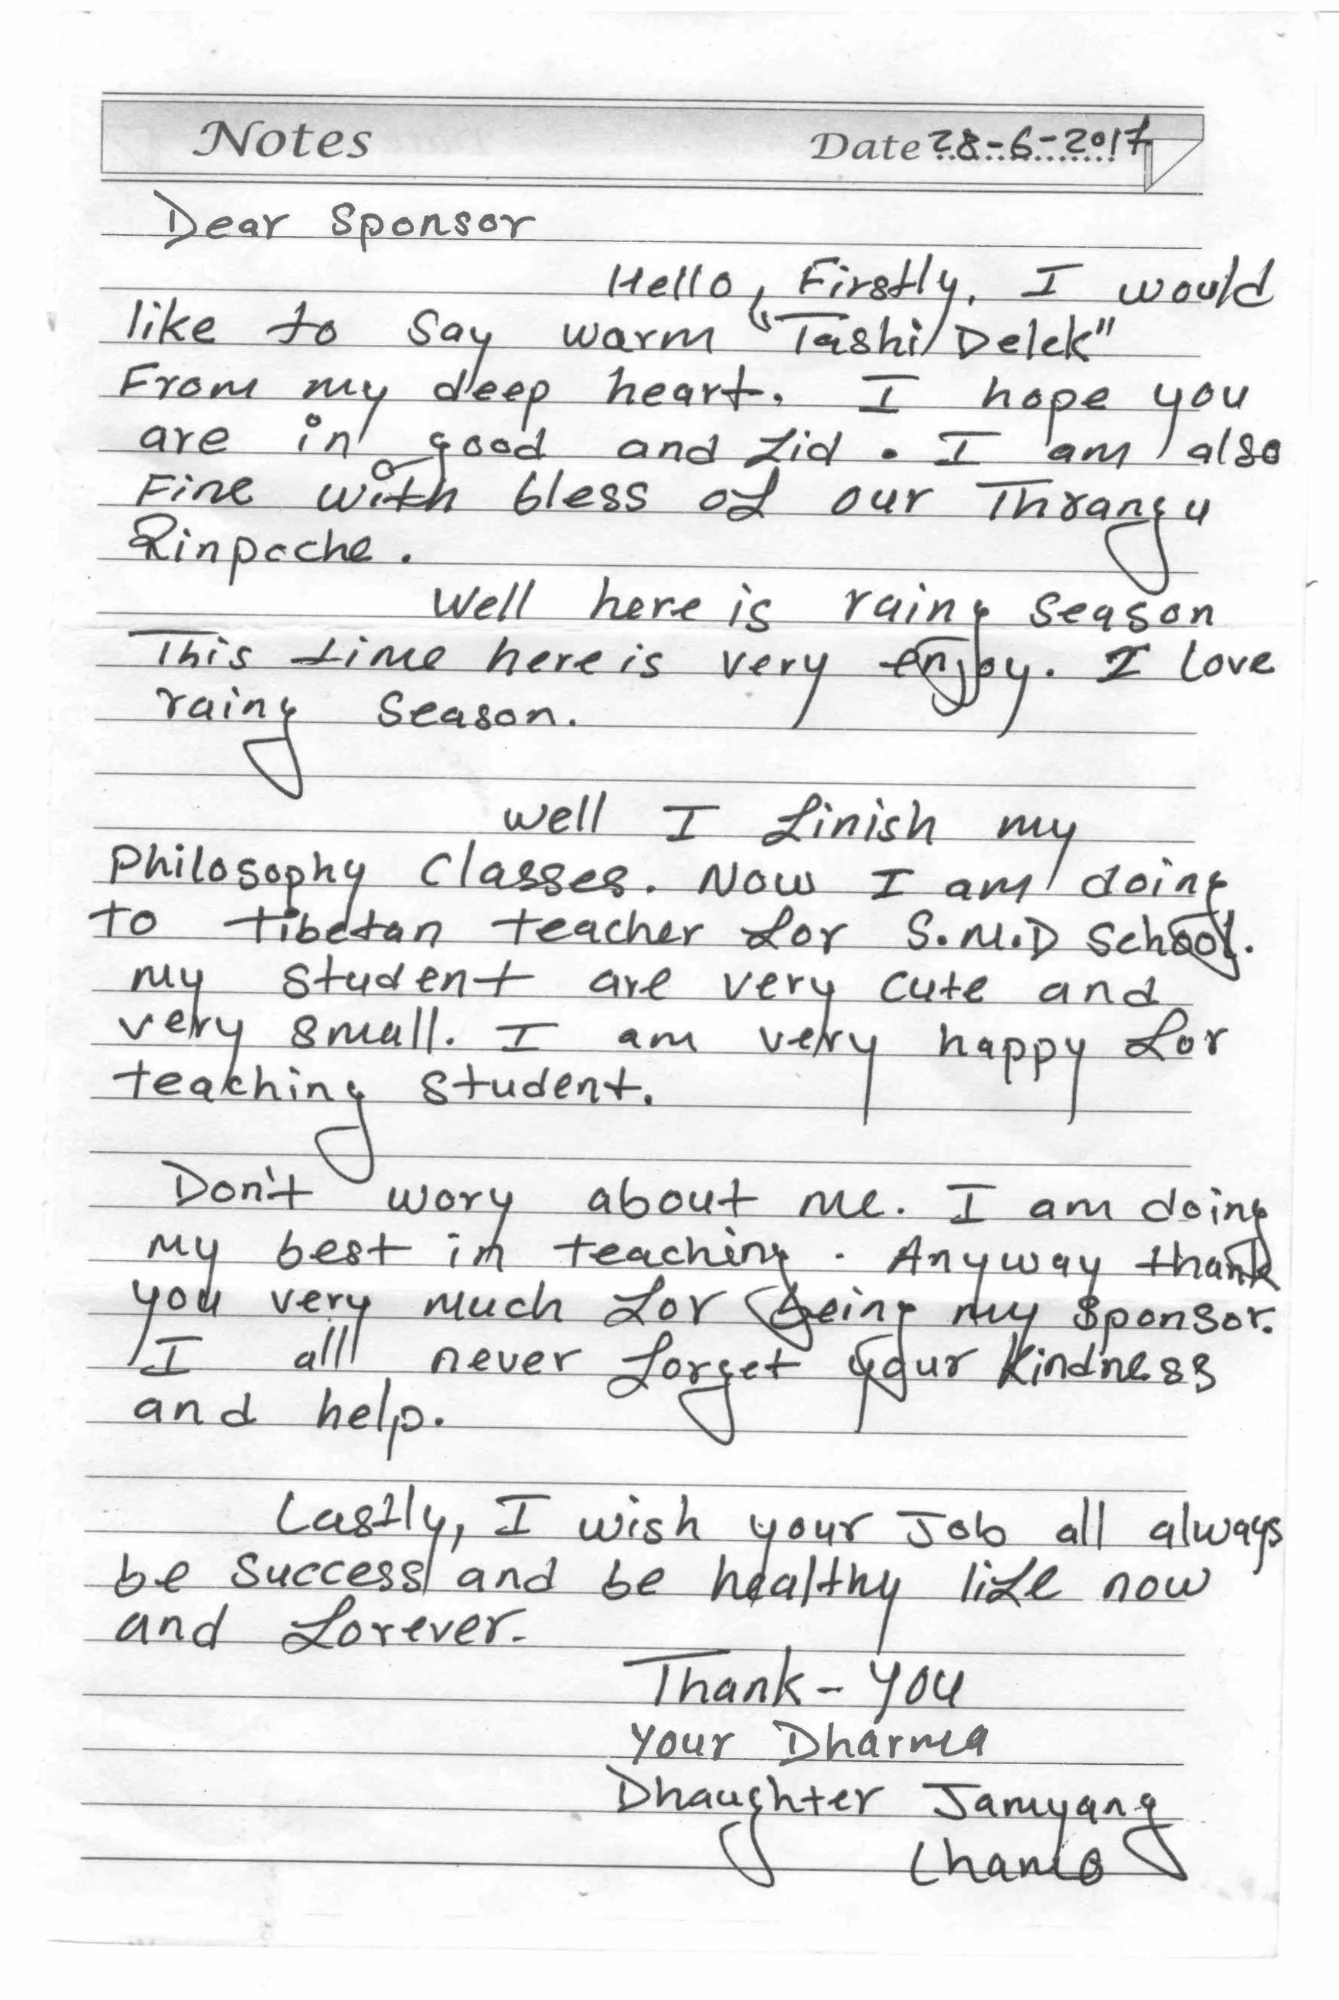 Notes
Date 28-6-2017
Dear Sponsor
Hello, Firstly, I would
like to say warm "Tashi Delek"
From my deep heart. I hope you
are in good and fid. I am also
Fine with bless of our Thrangu
Rinpoche.
Well here is rainy season
This time here is very enjoy. I love
rainy season.
Well I finish my
Philosophy classes. Now I am doing
to tibetan teacher for S.M.D School.
my student are very cute and
very small. I am very happy for
teaching student.
Don't wory about me. I am doing
my best in teaching. Anyway thank
you very much for being my sponsor.
I all never forget your kindness
and help.
Lastly, I wish your Job all always
be success and be healthy life now
and forever.
Thank-you
your Dharma
Dhaughter Jamyang
Lhamo